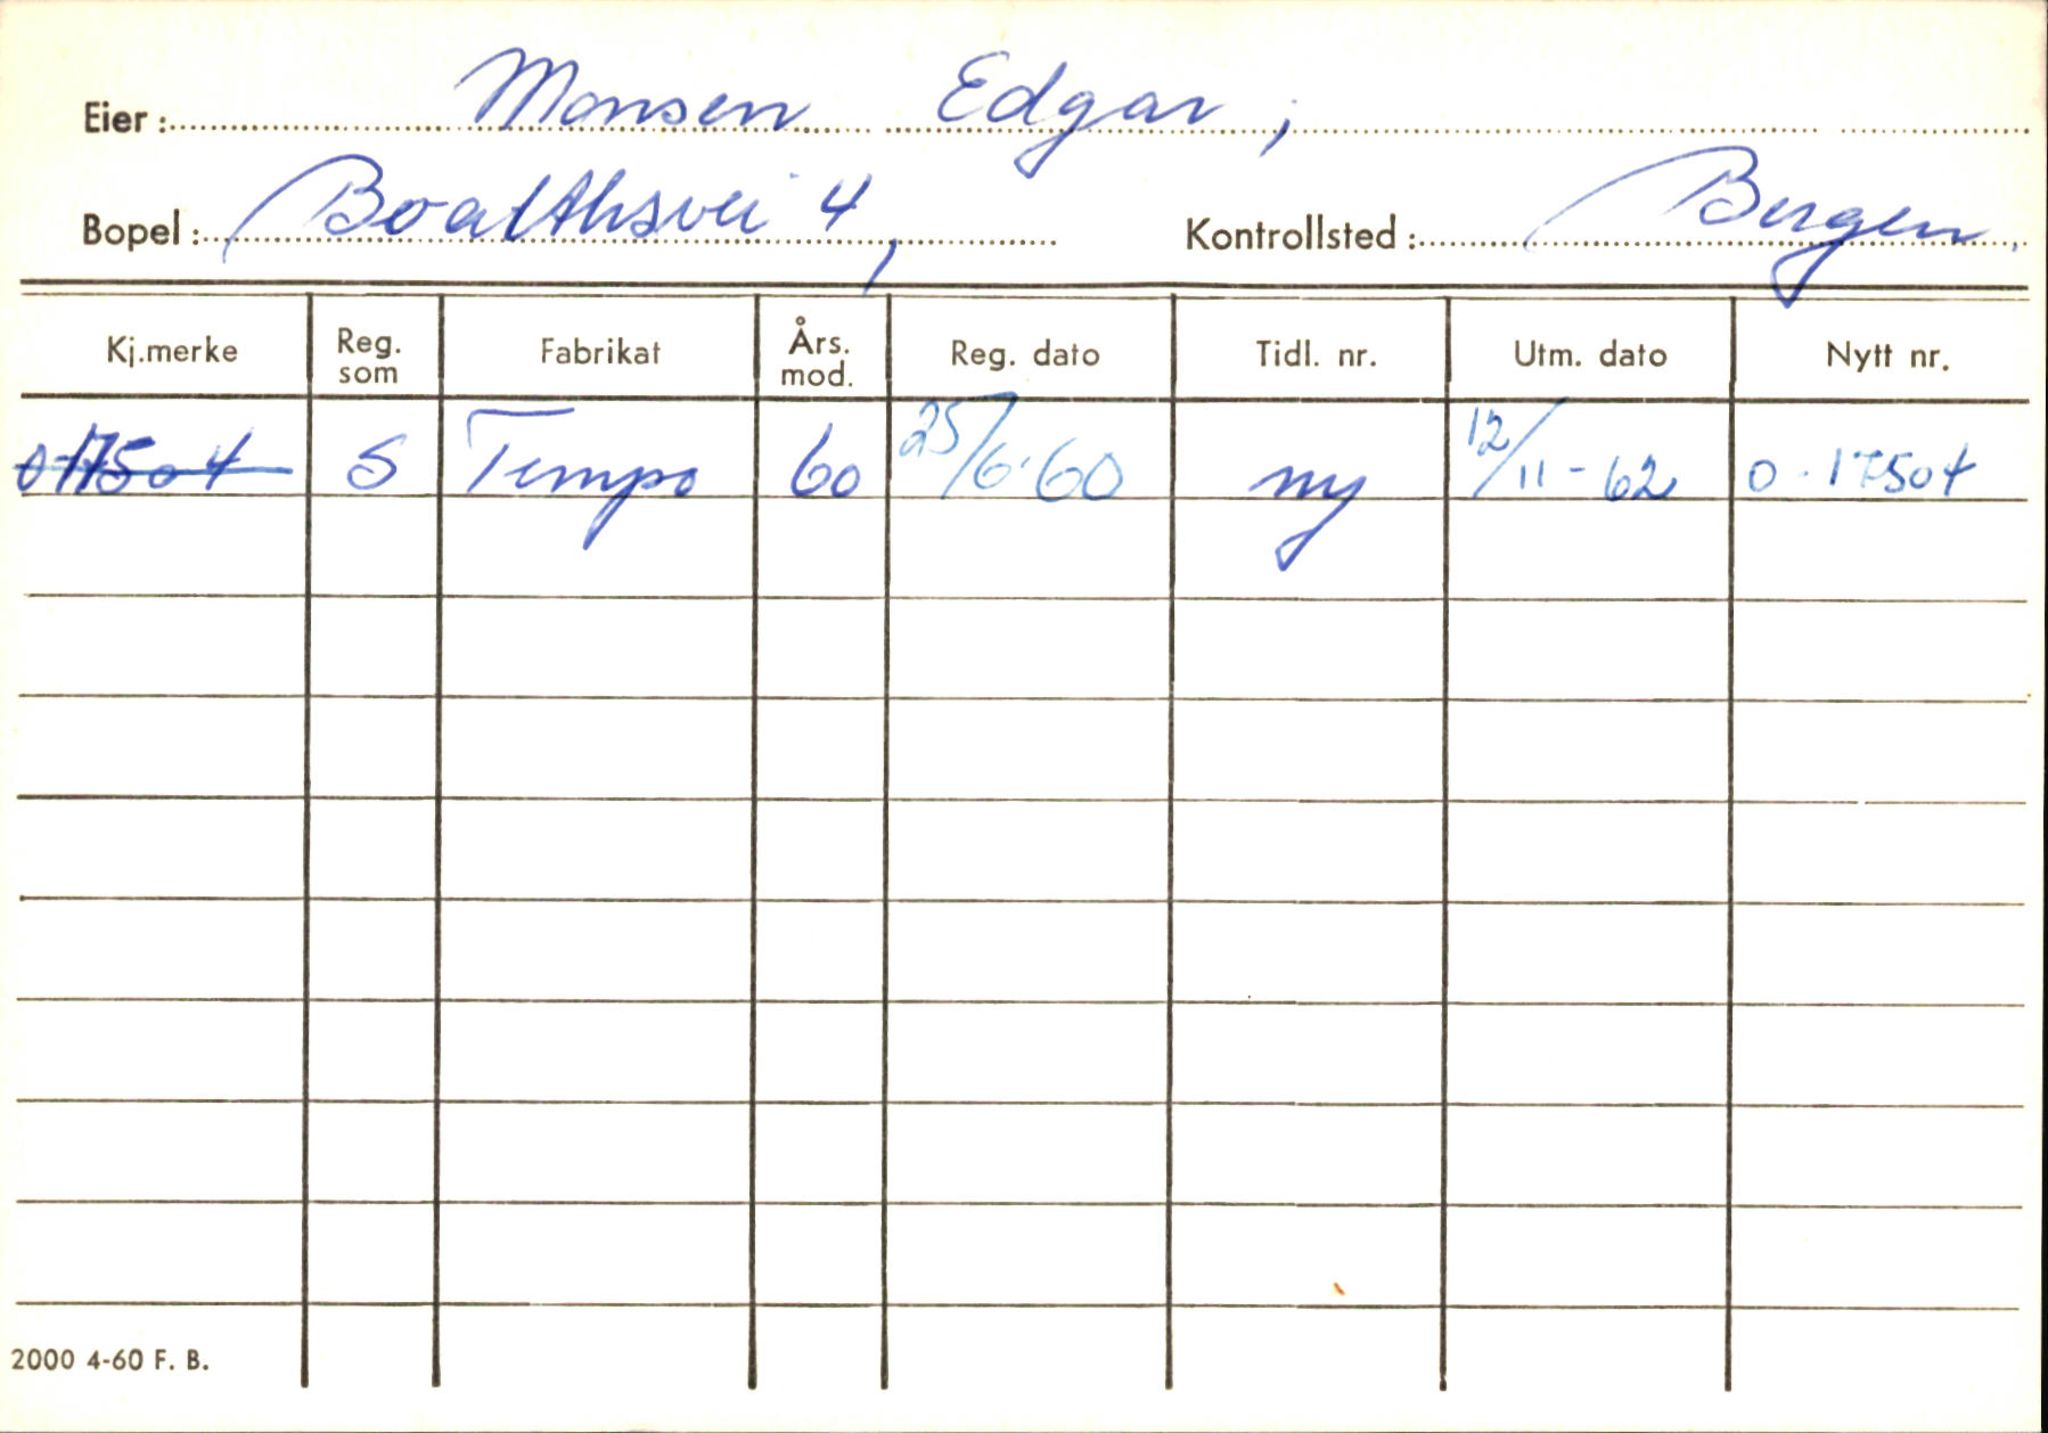 Eier: Monsen Edgar,
Bopel: Boalthsvei 4, Kontrollsted: Bergen.
Kj.merke Reg. som Fabrikat Års. mod. Reg. dato Tidl. nr. Utm. dato Nytt nr.
0-17504 S Tempo 60 25/6-60 ny 12/11-62 0-17504
2000 4-60 F. B.